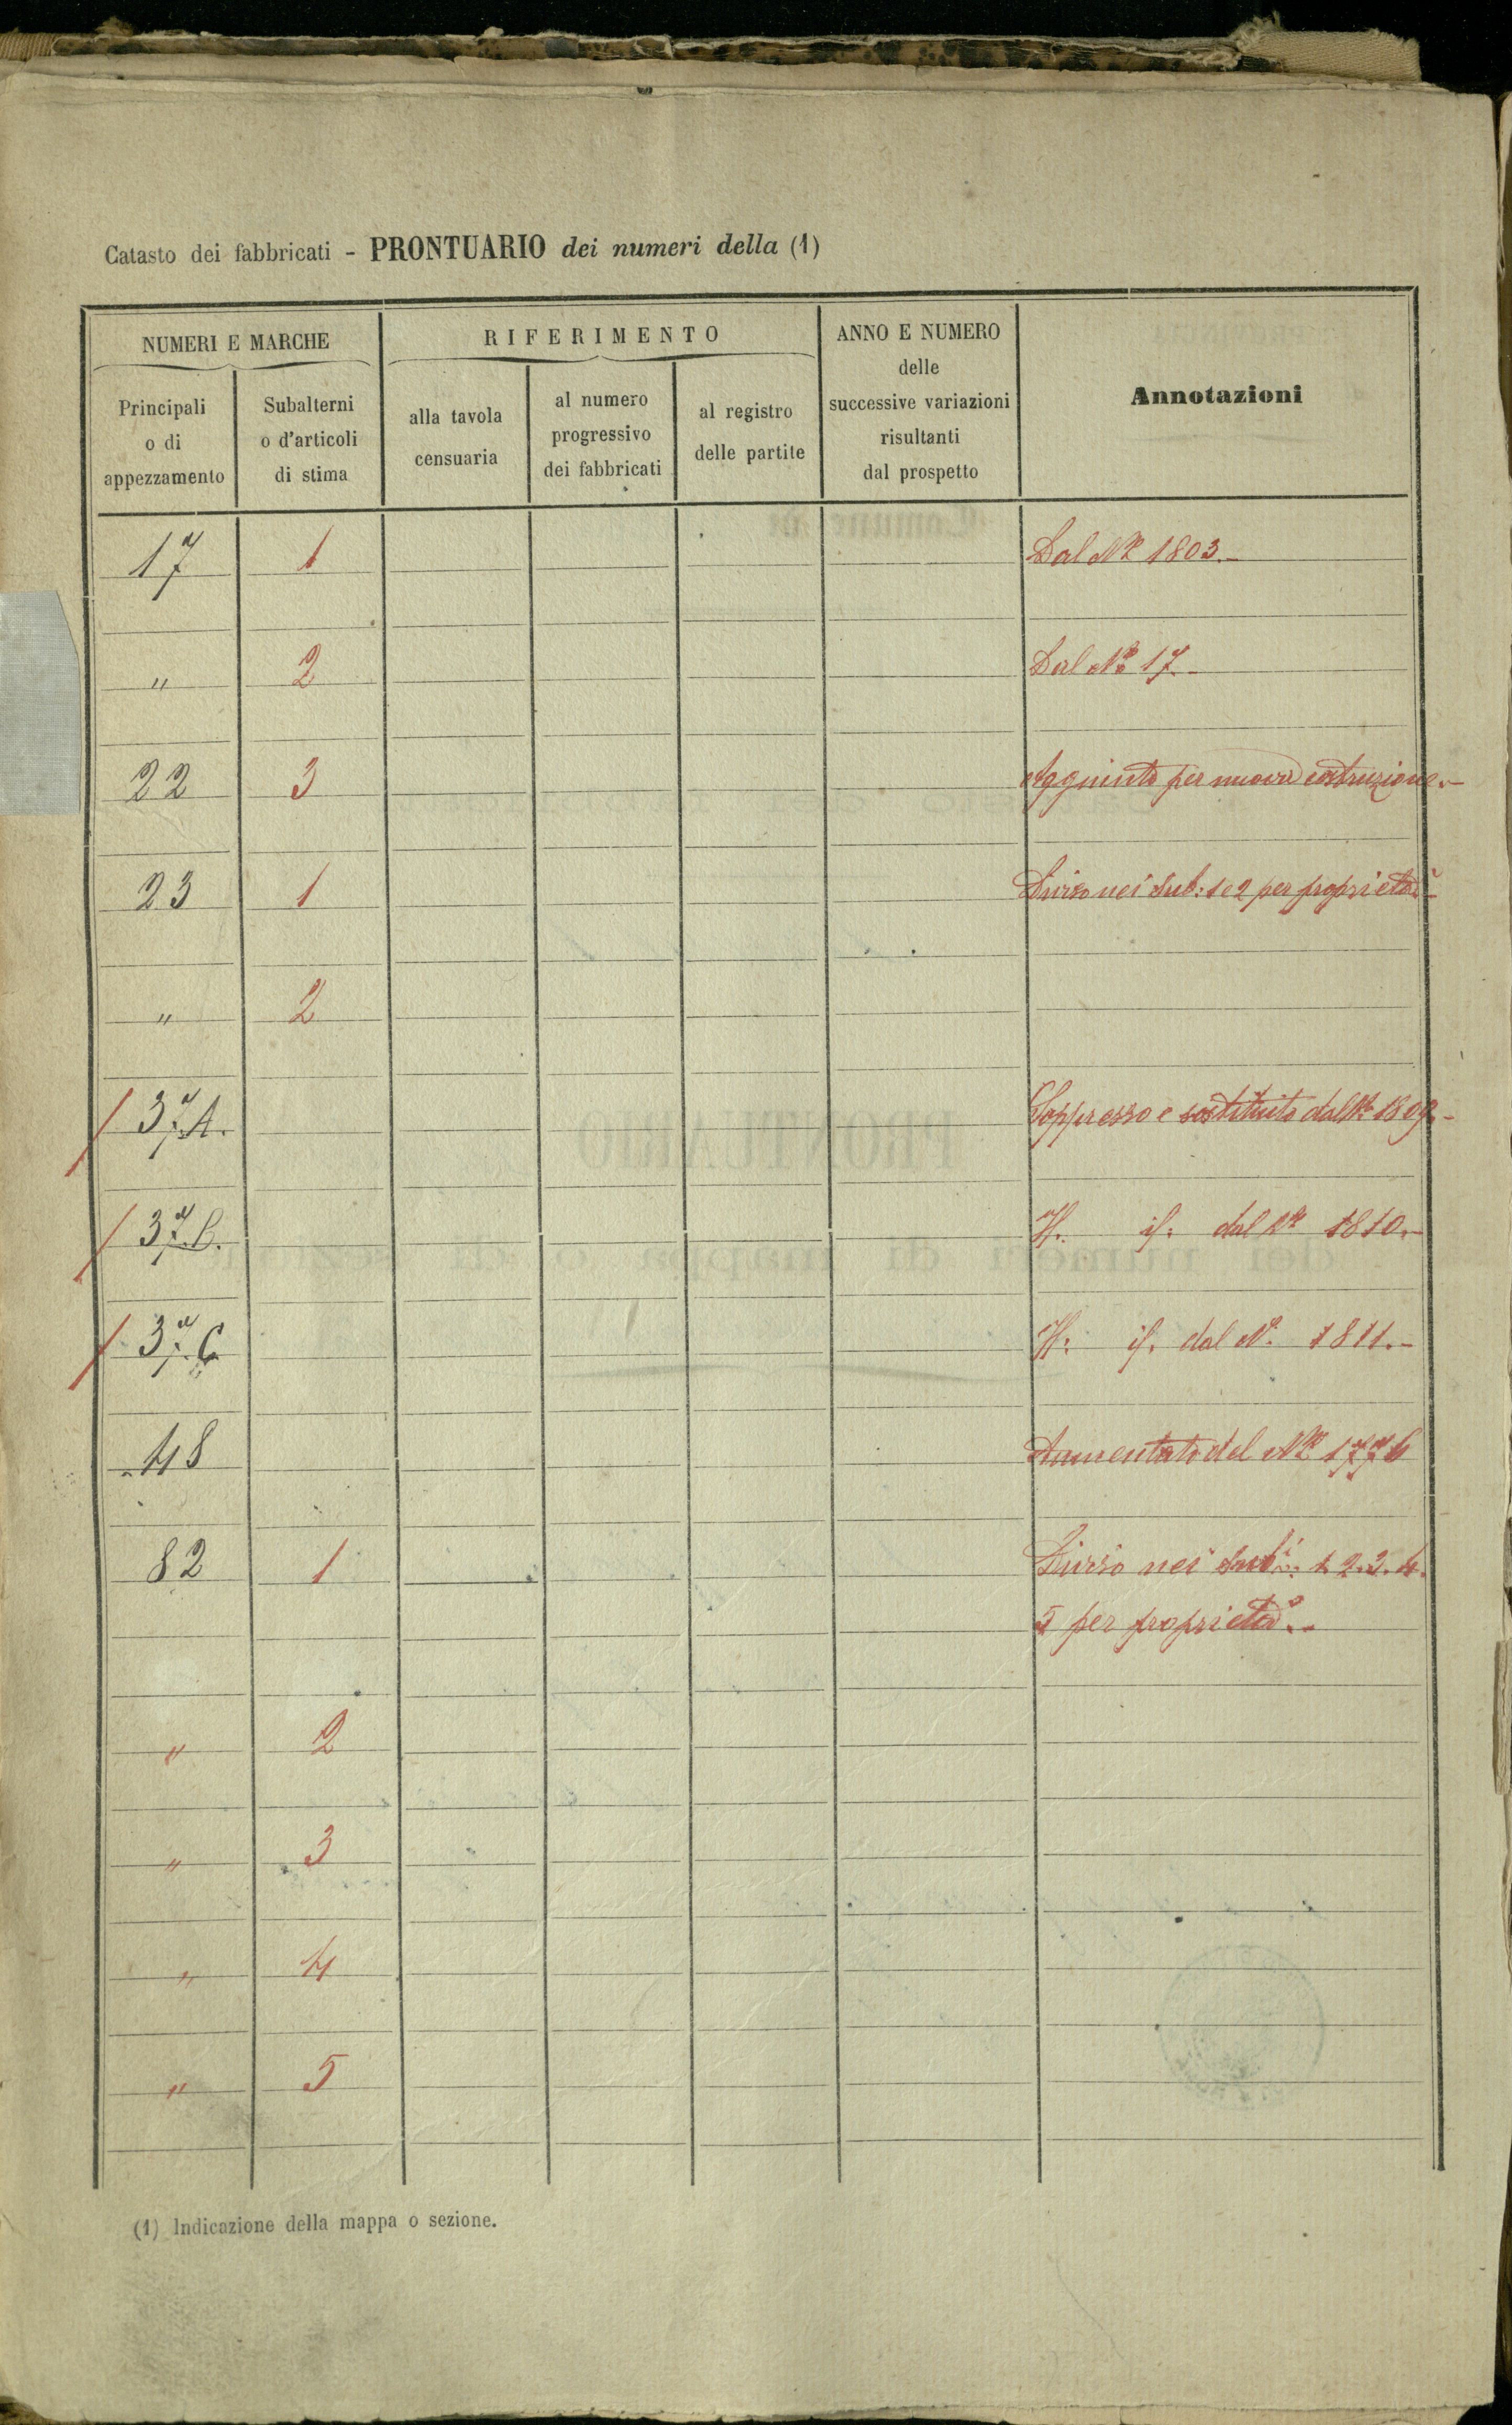 Catasto dei fabbricati - PRONTUARIO dei numeri della (1)
NUMERI E MARCHE
RIFERIMENTO
ANNO E NUMERO
delle
successive variazioni
risultanti
dal prospetto
Annotazioni
Principali
o di
appezzamento
Subalterni
o d'articoli
di stima
alla tavola
censuaria
al numero
progressivo
dei fabbricati
al registro
delle partite
17 1 Dal N.º 1803.-
" 2 Dal N.º 17.-
22 3 Aggiunto per nuova costruzione.-
23 1 Diviso nei Sub: 1 e 2 per proprietà.-
" 2
37.A. Soppresso e sostituito dal N.º 1809.-
37.B. If. if. dal N.º 1810.-
37.C. If: if. dal N.º 1811.-
48 Aumentato del N.º 1776
82 1 Diviso nei sub.i: 1. 2. 3. 4.
5 per proprietà.-
" 2
" 3
" 4
" 5
(1) Indicazione della mappa o sezione.